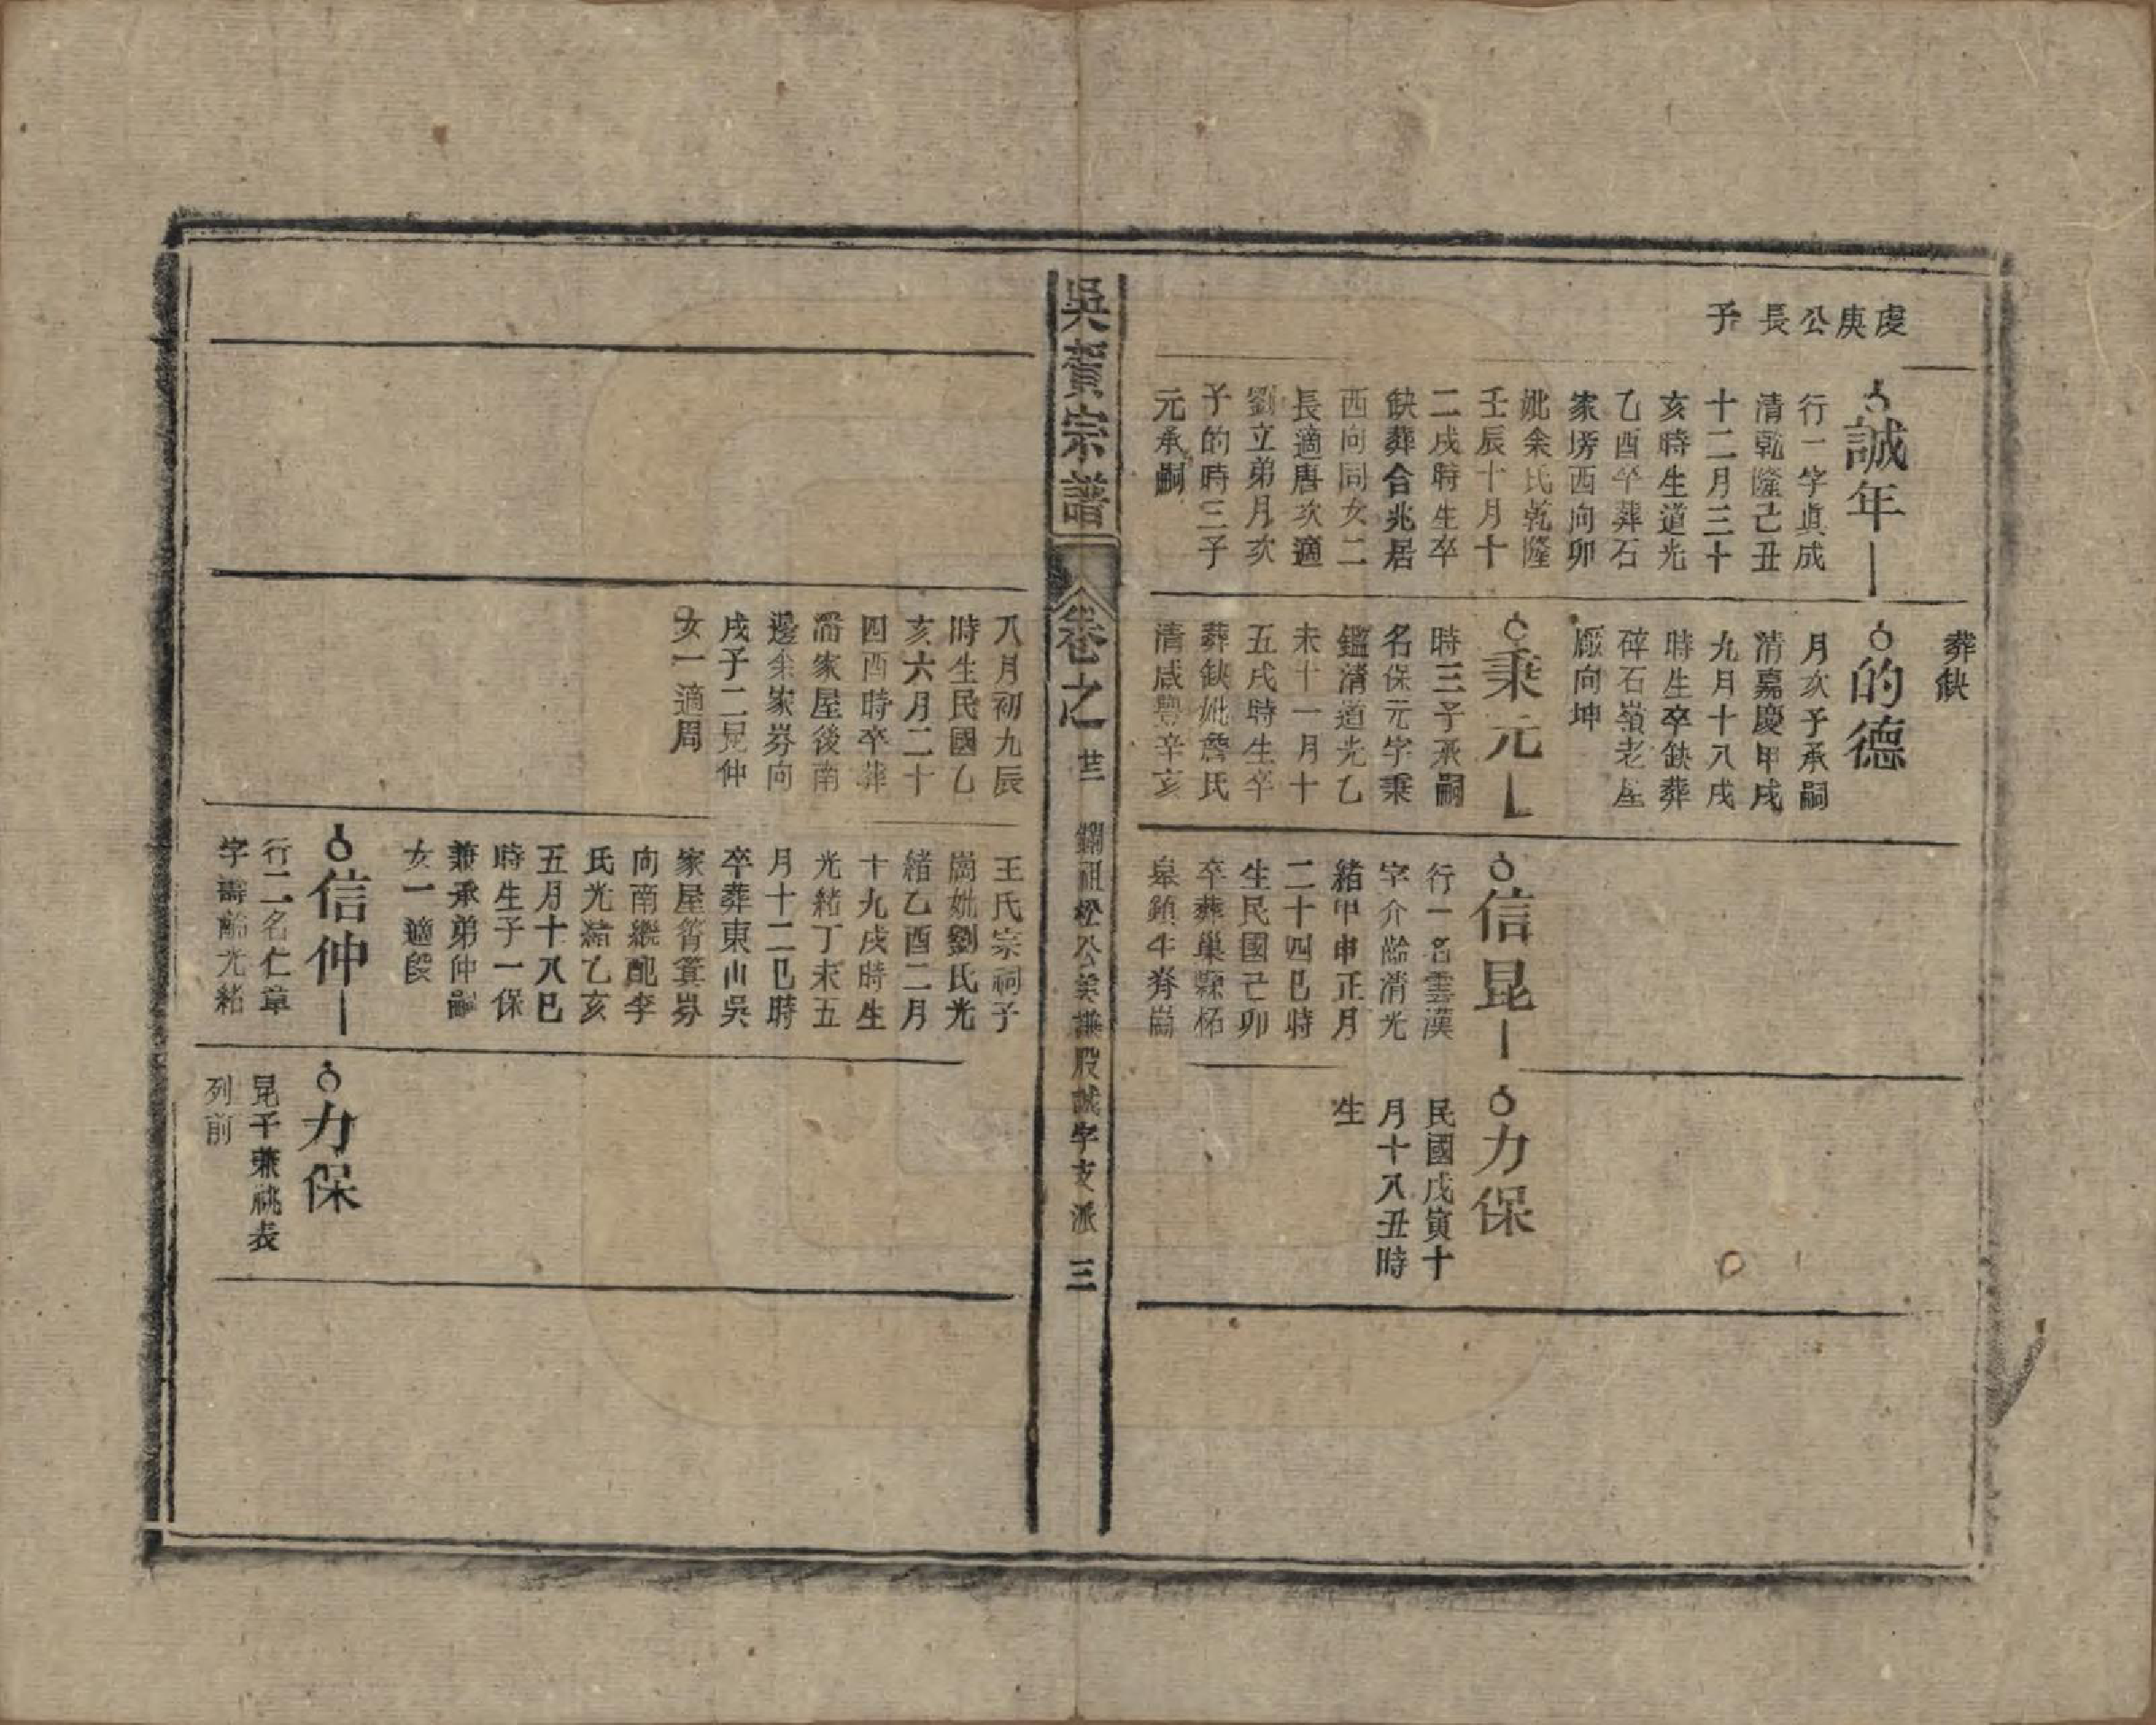 虔庚公長子
誠年
行一字真成
清乾隆己丑
十二月三十
亥時生道光
乙酉卒葬石
家塝西向卯
妣余氏乾隆
壬辰十月十
二戌時生卒
缺葬合兆居
西向同女二
長適唐次適
劉立弟月次
子的時三子
元承嗣
葬缺
的德
月次子承嗣
清嘉慶甲戌
九月十八戌
時生卒缺葬
碎石嶺老屋
廒向坤
秉元
時三子承嗣
名保元字秉
鑑清道光乙
未十一月十
五戌時生卒
葬缺妣詹氏
清咸豐辛亥
信昆
行一名雲漢
字介齡清光
緒甲申正月
二十四巳時
生民國己卯
卒葬巢縣柘
皋鎮牛脊崗
力保
民國戊寅十
月十八丑時
生
吳賀宗譜
卷之廿二
祖松公美謙股誠字支派
三
八月初九辰
時生民國乙
亥六月二十
四酉時卒葬
潘家屋後南
邊余家塝向
戌子二昆仲
女一適周
王氏宗祠子
崗妣劉氏光
緒乙酉二月
十九戌時生
光緒丁未五
月十二巳時
卒葬東山吳
家屋筲箕塝
向南繼配李
氏光緒乙亥
五月十八巳
時生子一保
兼承弟仲嗣
女一適段
信仲
行二名仁章
字壽齡光緒
力保
昆子兼祧表
列前